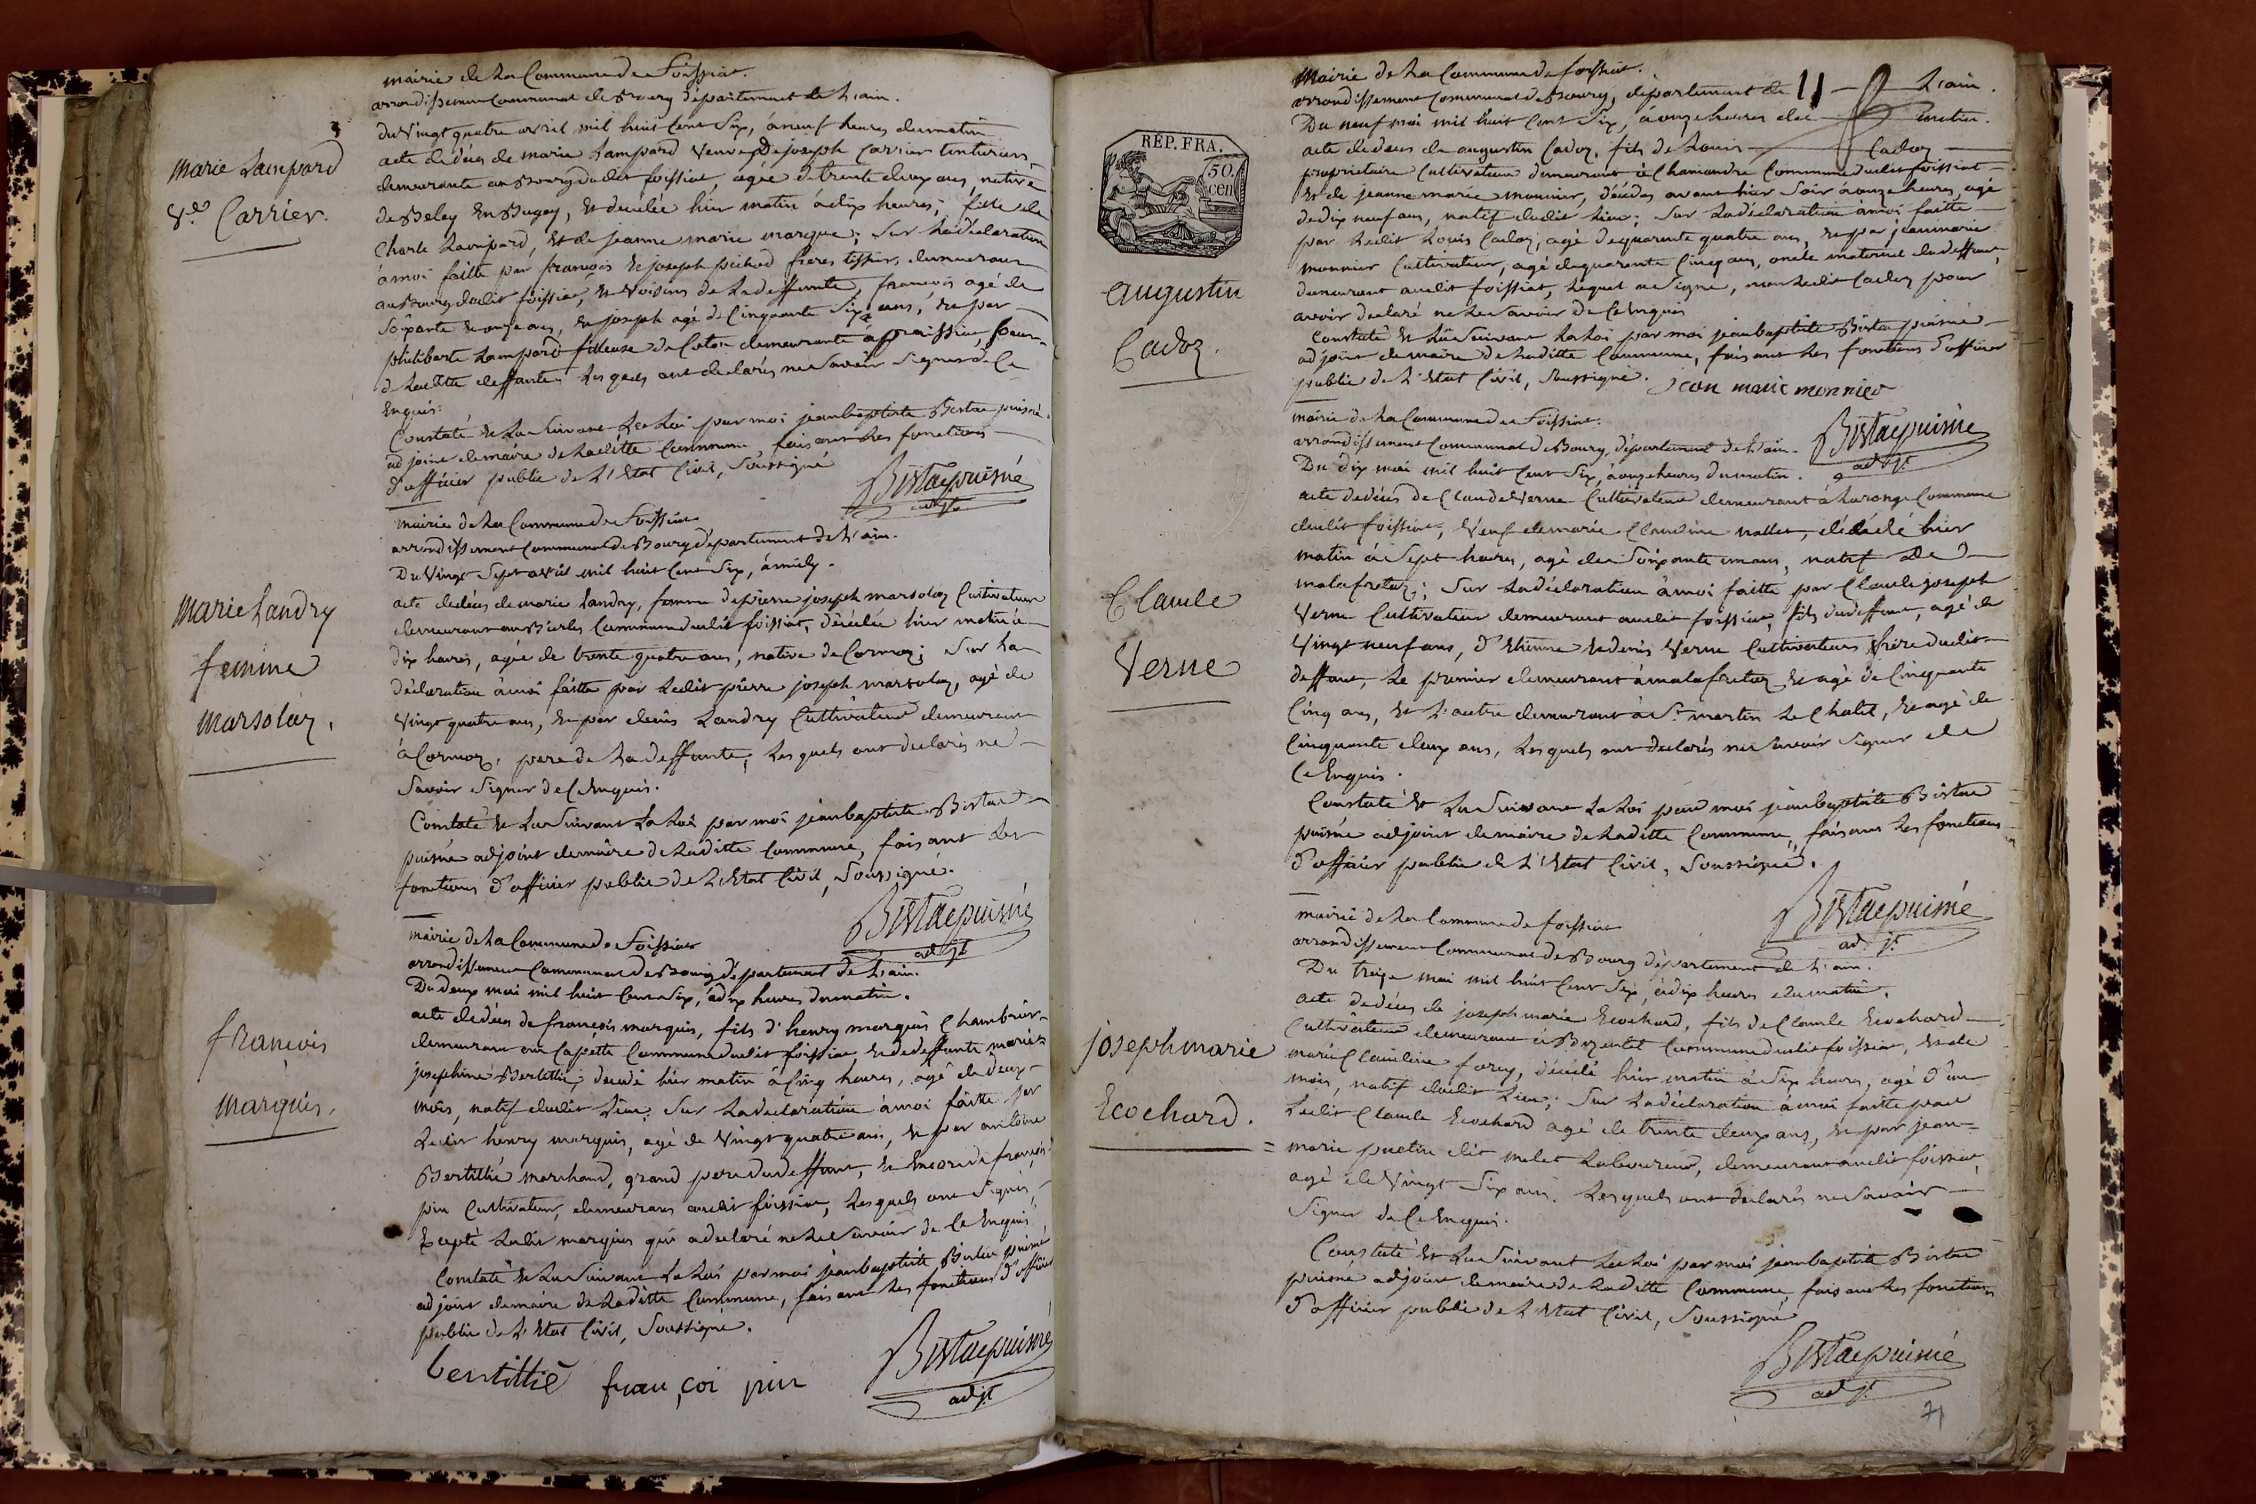 mairie de La Commune de Foissiat.
arrondissement Communal de Bourg département de L'ain.
du Vingt quatre avril mil huit Cent Six, à neuf heures du matin
Marie Lampard
Ve. Carrier.
acte de décès de marie Lampard Veuve de joseph Carrier teinturier,
demeurante au Bourg dudit foissiat, agée de trente deux ans, native
de Beley En Bugey, Et décédée hier matin à dix heures; fille de
Charle Lampard, Et de jeanne marie marque; Sur La déclaration
à moi faitte par françois Et joseph pichod freres tissier, demeurant
au Bourg dudit foissiat, Et Voisins de La deffunte, françois agé de
Soixante Et onze ans, Et joseph agé de Cinquante Six ans, Et par
philiberte Lampard fileuse de Coton demeurante à foissiat, Soeur
de Laditte deffunte; Les quels ont declarés ne Savoir Signer de Ce
Enquis.
Constaté Et Lu Suivant La Loi par moi jean baptiste Bistac puisné
adjoint de maire de Laditte Commune faisant Les fonctions
d'officier public de L'Etat Civil, Soussigné
Bistac puisné
adjt
mairie de La Commune de Foissiat
arrondissement Communal de Bourg département de L'ain.
Du Vingt Sept avril mil huit Cent Six, à midy.
Marie Landry
femme
Marsoläz.
acte de décès de marie Landry, femme de pierre joseph marsolaz Cultivateur
demeurant aux Commune dudit foissiat, décédée hier matin à
dix heures, agée de trente quatre ans, native de Cormoz; Sur La
déclaration à moi faitte par Ledit pierre joseph marsolaz, agé de
Vingt quatre ans, Et par denis Landry Cultivateur demeurant
à Cormoz, pere de La deffunte; Les quels ont declarés ne
Savoir Signer de Ce Enquis.
Constaté Et Lu Suivant La Loi par moi jean baptiste Bistac
puisné adjoint de maire de Laditte Commune, faisant Les
fonctions d'officier public de L'Etat Civil, Soussigné.
Bistac puisné
adjt
mairie de La Commune de Foissiat
arrondissement Communal de Bourg département de L'ain.
Du deux mai mil huit Cent Six, à dix heures du matin.
francois
Marquis.
acte de décès de francois marquis, fils d'henry marquis
demeurant Commune dudit foissiat Et de deffunte marie
josephine Bertillié; décédé hier matin à Cinq heures, agé de deux
mois, natif dudit Lieu; Sur La declaration à moi faitte par
Ledit henry marquis, agé de Vingt quatre ans, Et par antoine
Bertillié marchand, grand pere du deffunt, Et Encore de françois
pin Cultivateur, demeurans audit foissiat, Lesquels ont Signés,
Excepté Ledit marquis qui a declaré ne Le Savoir de Ce Enquis.
Constaté Et Lu Suivant La Loi par moi jean baptiste Bistac puisné
adjoint de maire de Laditte Commune, faisant Les fonctions d'officier
public de L'Etat Civil, Soussigné.
bertillié françoi pin
Bistac puisné
adjt
Mairie de La Commune de foissiat.
arrondissement Communal de Bourg, département de L'ain.
11
Du neuf mai mil huit Cent Six, à onze heures du matin.
RÉP. FRA.
50.
cen
augustin
Cadoz.
acte de décès de augustin Cadoz, fils de Louis Cadoz
proprietaire Cultivateur demeurant à Chamandre Commune dudit foissiat
Et de jeanne marie monnier, décédé avant hier Soir à onze heures, agé
de dix neuf ans, natif dudit Lieu; Sur La déclaration à moi faitte
par Ledit Louis Cadoz, agé de quarante quatre ans, Et par jean marie
monnier Cultivateur, agé de quarante Cinq ans, oncle maternel du deffunt,
demeurant audit foissiat, Lequel a Signé, non Ledit Cadoz pour
avoir declaré ne Le Savoir de Ce Enquis
Constaté Et Lu Suivant La Loi par moi jean baptiste Bistac puisné
adjoint de maire de Laditte Commune, faisant Les fonctions d'officier
public de L'Etat Civil, Soussigné. jean marie monnier
Bistac puisné
adjt
mairie de La Commune de Foissiat.
arrondissement Communal de Bourg, département de L'ain.
Du dix mai mil huit Cent Six, à onze heures du matin.
Claude
Verne
acte de décès de Claude Verne Cultivateur demeurant à Laronge Commune
dudit foissiat, Veuf de marie Claudine nallet, décédé hier
matin à Sept heures, agé de Soixante un ans, natif de
malafretaz; Sur La déclaration à moi faitte par Claude joseph
Verne Cultivateur demeurant audit foissiat, fils du deffunt, agé de
Vingt neuf ans, d'Etienne Et denis Verne Cultivateurs frere dudit
deffunt, Le premier demeurant à malafretaz Et agé de Cinquante
Cinq ans, Et L'autre demeurant à St. martin Le Chatel, Et agé de
Cinquante deux ans, Lesquels ont declarés ne Savoir Signer de
Ce Enquis.
Constaté Et Lu Suivant La Loi par moi jean baptiste Bistac
puisné adjoint de maire de Laditte Commune, faisant Les fonctions
d'officier public de L'Etat Civil, Soussigné.
Bistac puisné
adjt
mairie de La Commune de foissiat
arrondissement Communal de Bourg département de L'ain.
Du treize mai mil huit Cent Six, à dix heures du matin.
joseph marie
Ecochard.
acte de décès de joseph marie Ecochard, fils de Claude Ecochard
Cultivateur demeurant à Bezentet Commune dudit foissiat, Et de
marie Claudine foray, décédé hier matin à Six heures, agé d'un
mois, natif dudit Lieu; Sur La déclaration à moi faitte par
Ledit Claude Ecochard agé de trente deux ans, Et par jean
marie dit Laboureur, demeurant audit foissiat,
agé de Vingt Six ans. Lesquels ont declarés ne Savoir
Signer de Ce Enquis.
Constaté Et Lu Suivant La Loi par moi jean baptiste Bistac
puisné adjoint de maire de Laditte Commune, faisant Les fonctions
d'officier public de L'Etat Civil, Soussigné
Bistac puisné
adjt
71